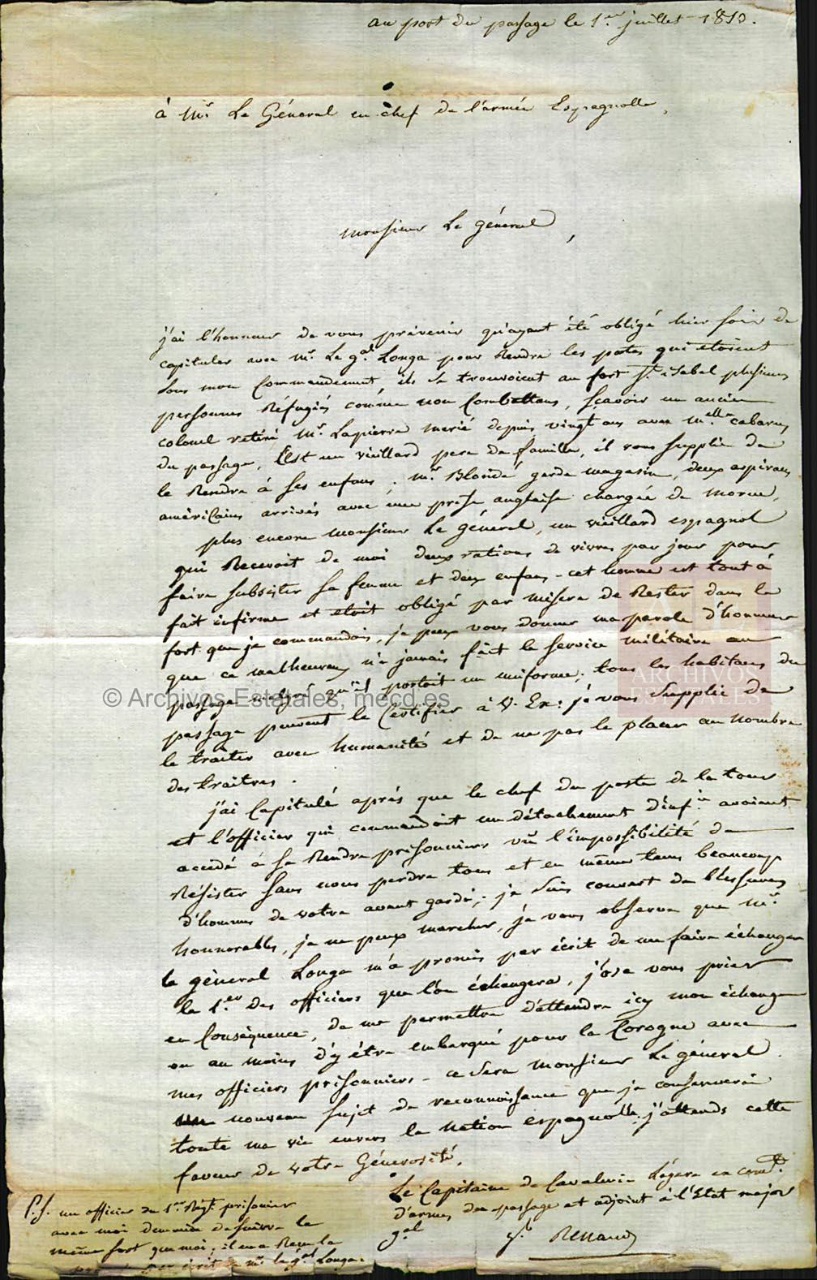 au port du passage le 1.er juillet 1813.
à Mr. Le Général en chef de l'armée Espagnolle,
Monsieur Le général,
j'ai l'honneur de vous prévenir qu'ayant été obligé hier soir de
capituler avec Mr. Le gal. Longa pour Rendre les postes qui etoient
sous mon Commandement, ils se trouvoient au fort St. isabel plusieurs
personnes Réfugiés comme non Combattans, sçavoir un ancien
colonel retiré Mr. Lapierre marié depuis vingt ans avec Melle cabarus
du passage, C'est un vieillard pere de famille, il vous supplie de
le Rendre à ses enfans. Mr. Blondé garde magasin, deux aspirans
américains arrivés avec une prise anglaise chargée de morue,
plus encore monsieur Le général, un vieillard espagnol
qui Recevoit de moi deux rations de vivres par jour pour
faire subsister sa femme et deux enfans - cet homme est tout à
fait infirme et etoit obligé par misere de Rester dans le
fort que je commandois, je peux vous donner ma parole d'honneur
que ce malheureux n'a jamais fait le service militaire au
passage qu'il portoit un uniforme; tous les habitans du
passage peuvent le Certifier à V. Ex: je vous supplie de
le traiter avec humanité et de ne pas le placer au nombre
des traitres.
j'ai Capitulé aprés que le chef du poste de la tour
et l'officier qui commandoit un détachement d'infie avoient
accédé à se Rendre prisonniers vû l'impossibilité de
Résister sans nous perdre tous et en même tems beaucoup
d'hommes de votre avant garde; je suis couvert de blessures
honnorables, je ne peux marcher, je vous observe que Mr.
le général Longa m'a promis par écrit de me faire échanger
le 1.er des officiers que l'on échangera, j'ose vous prier
en Conséquence, de me permettre d'attendre icy mon échange
ou au moins d'y être embarqué pour la Corogne avec
mes officiers prisonniers - ce sera monsieur Le général
un nouveau sujet de reconnoissance que je conserverai
toute ma vie envers la nation espagnolle. j'attends cette
faveur de votre Générosité.
Le Capitaine de Cavalerie Légere en comdt.
d'armes du passage et adjoint à l'Etat major
gal
Renaud
P.S. un officier du 1.er Régt. prisonier
avec moi demande de suivre le
même sort que moi; il en a Reçu la
par écrit de Mr. le gal Longa.
© Archivos Estatales, mecd.es
ARCHIVOS
ESTATALES